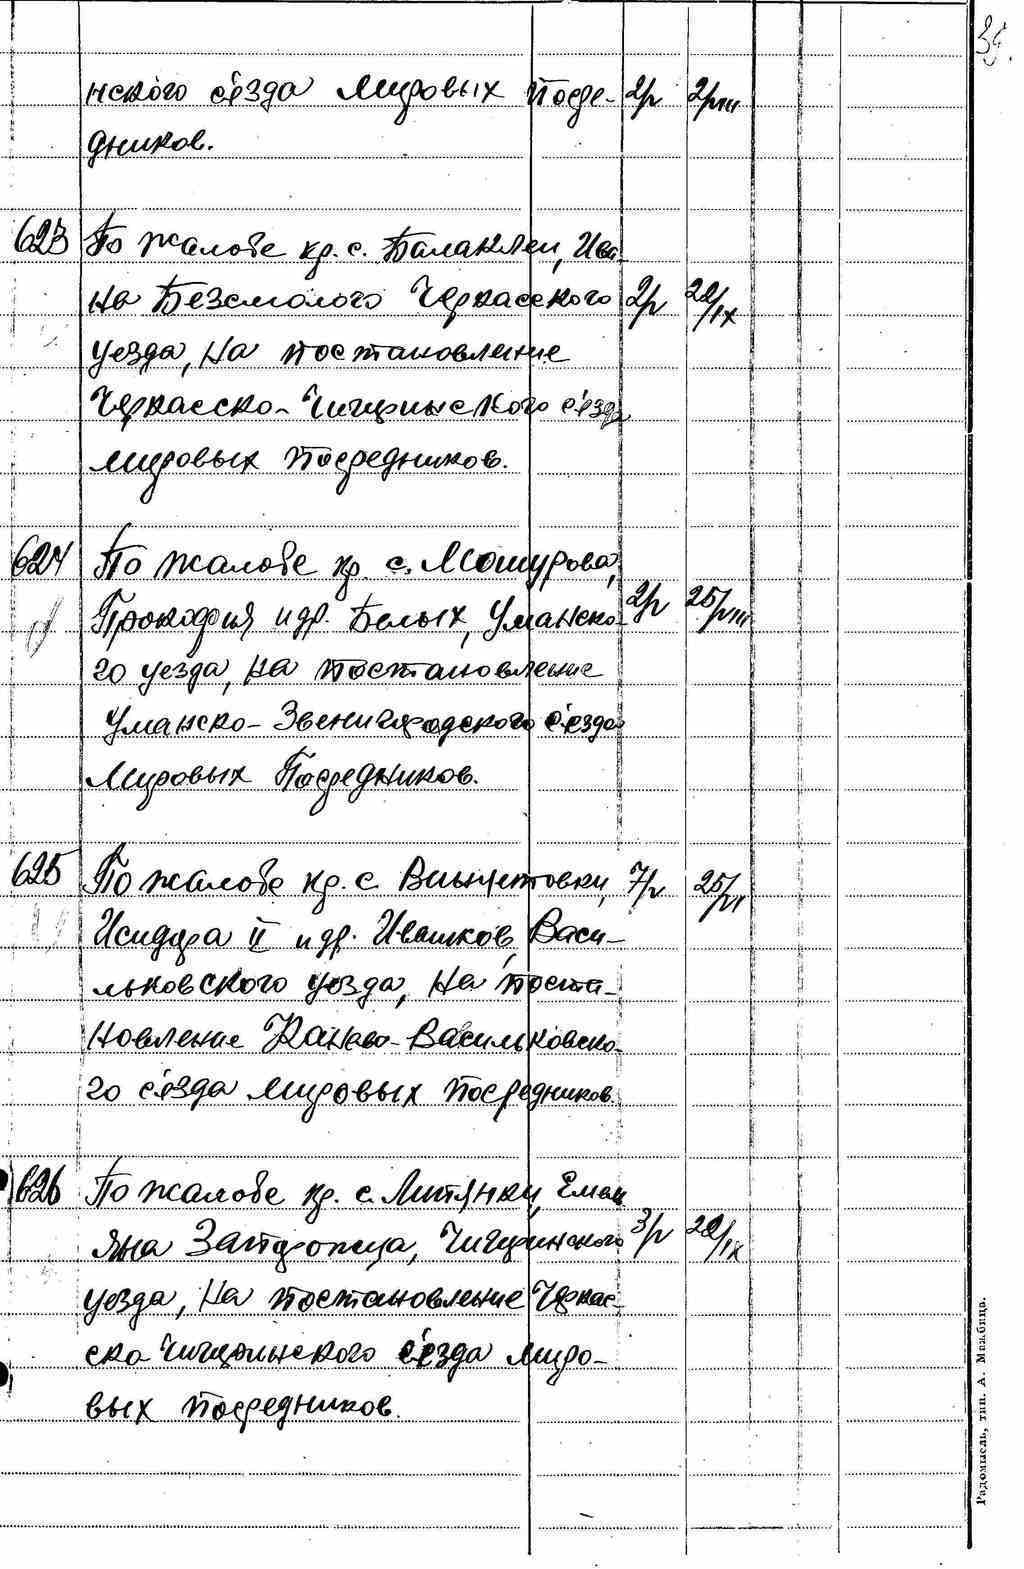 нского с'езда мировых посре- 2/V 2/VIII
дников.
623 По жалобе кр. с. Балаклеи, Ива-
на Безсмолого Черкасского 2/V 20/IX
уезда, на постановление
Черкасско-Чигиринского с'езда
мировых посредников.
624 По жалобе кр. с. Мошурова,
Прокофия и др. Белых, Уманско- 2/V 25/VIII
го уезда, на постановление
Уманско-Звенигородского с'езда
Мировых Посредников.
625 По жалобе кр. с. Винцентовки, 7/V 25/VI
Исидора II и др. Ивашков, Васи-
льковского уезда, на поста-
новление Канево-Васильковско-
го с'езда мировых посредников.
626 По жалобе кр. с. Лутянки, Емел
яна Запорожца, Чигиринского 3/V 20/IX
уезда, на постановление Черкас-
ско-Чигиринского с'езда миро-
вых посредников.
Радомысль, тип. А.